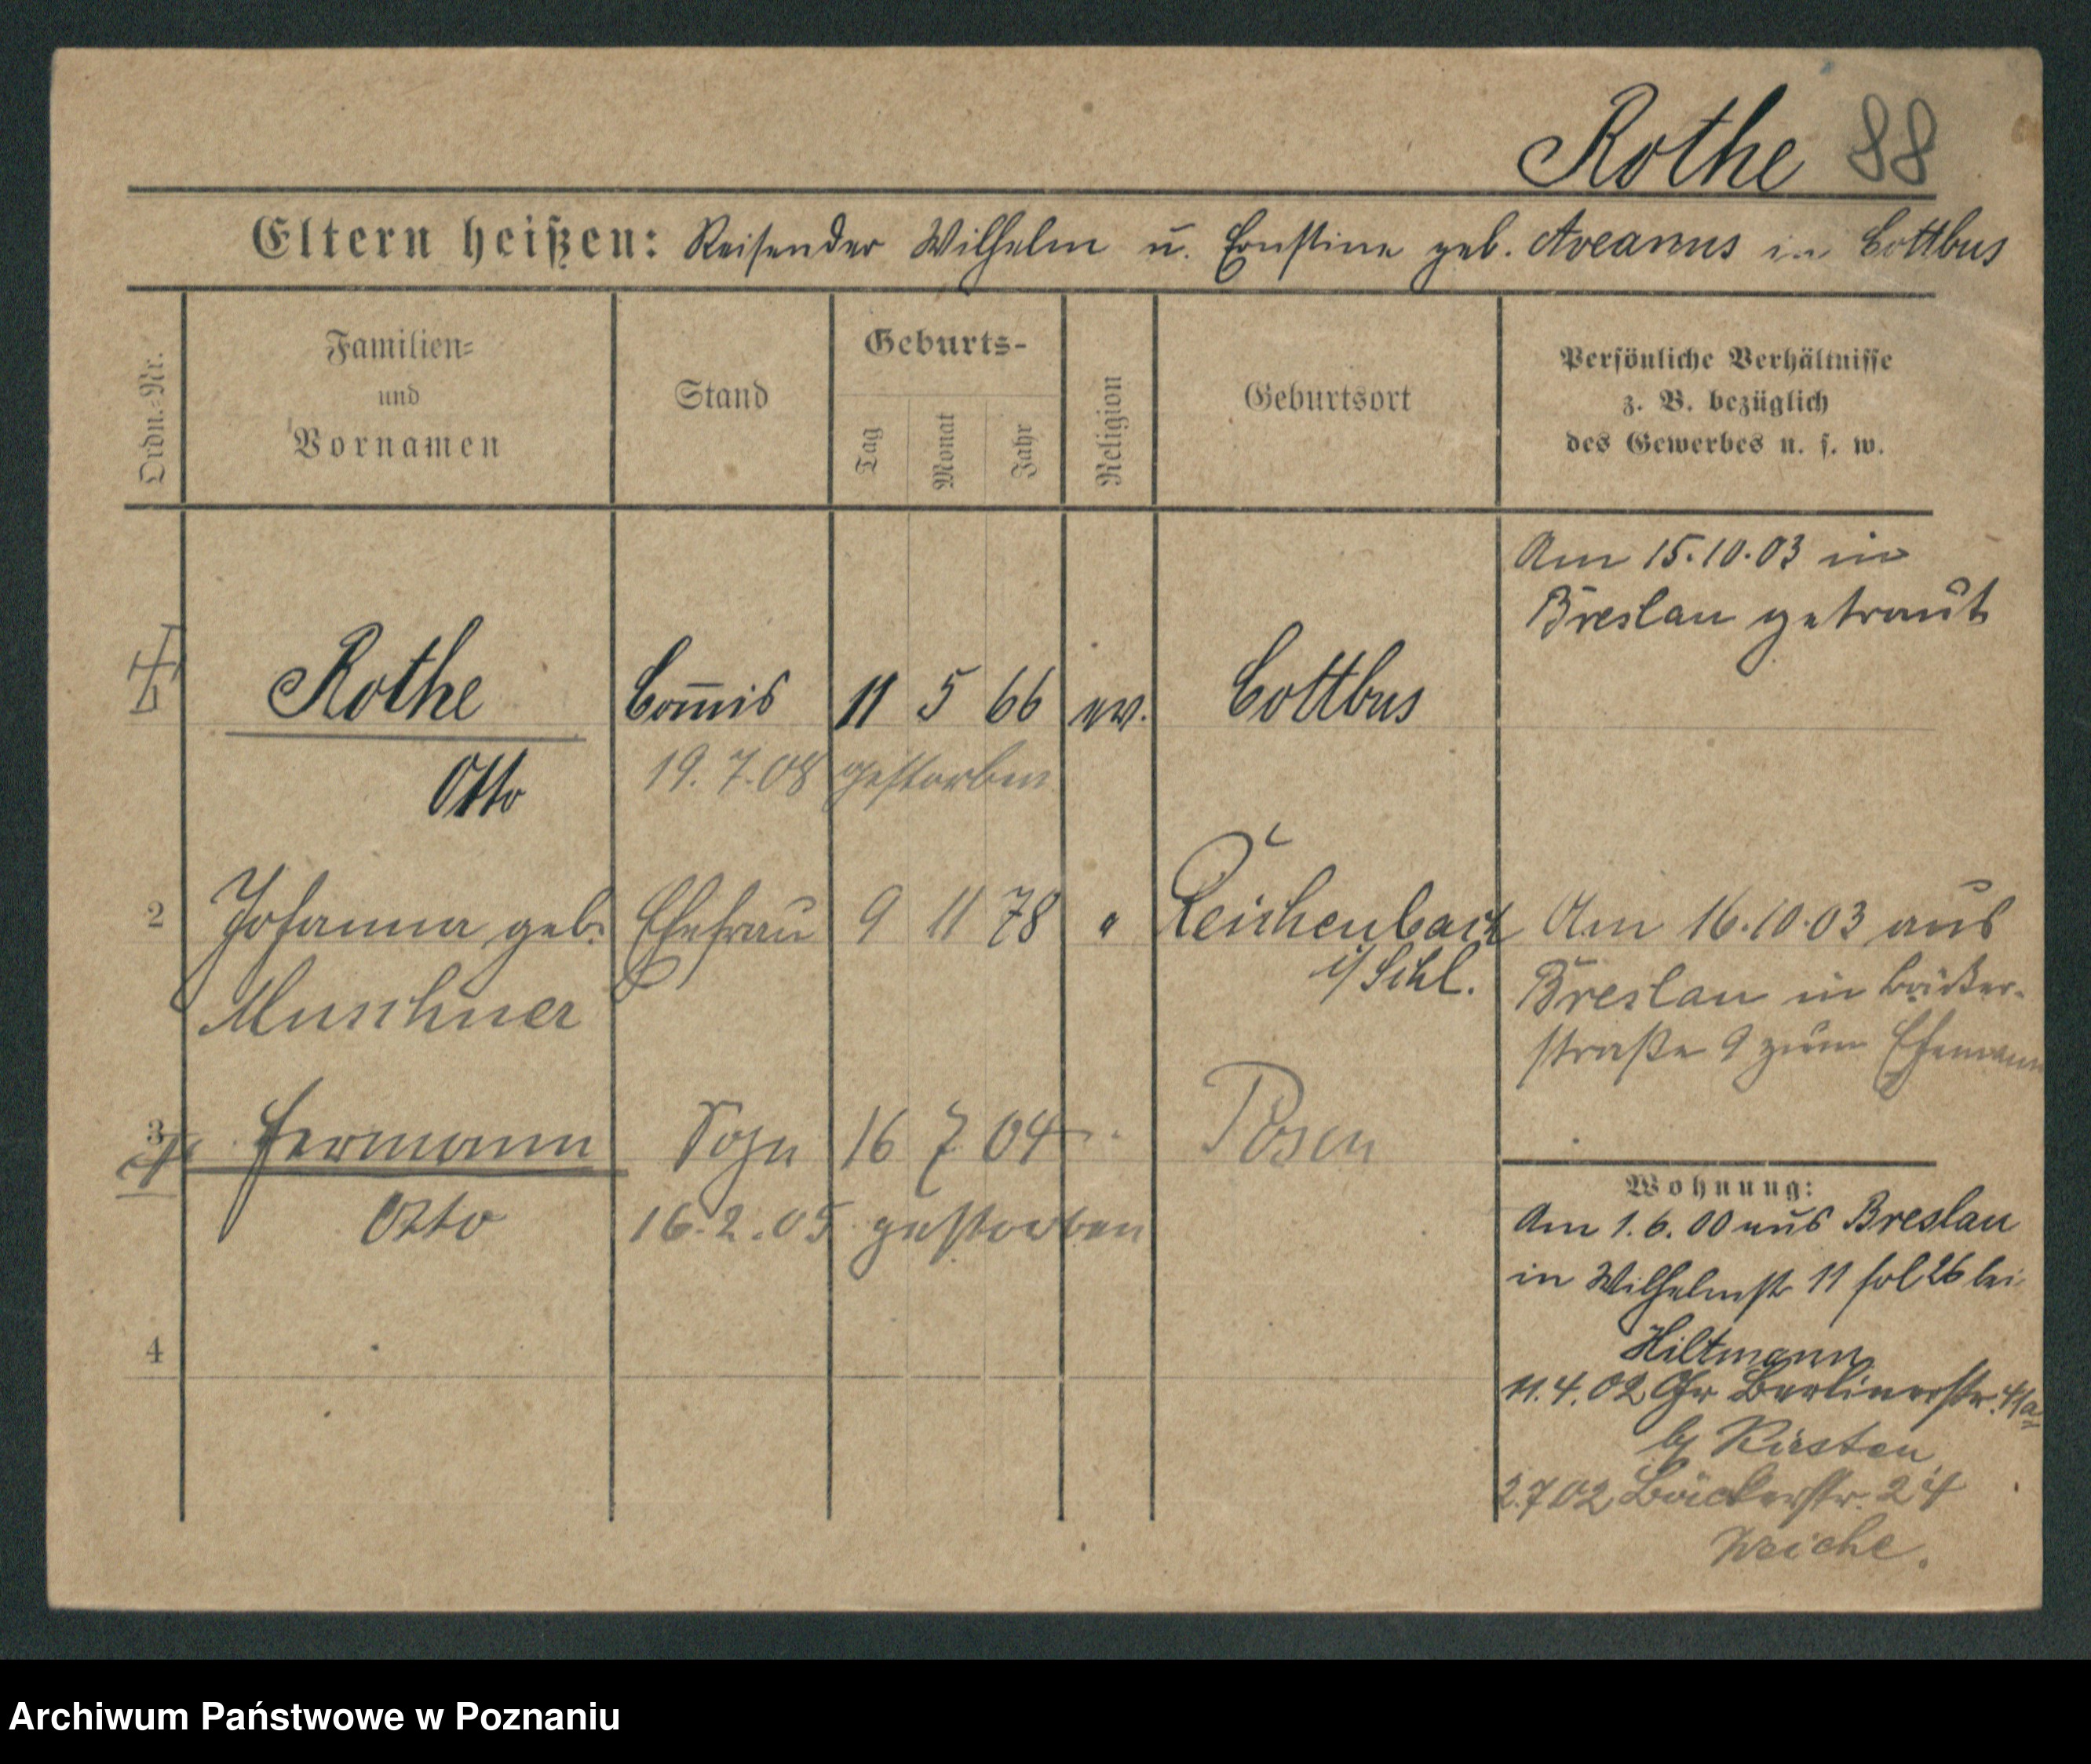 Rothe 88
Eltern heißen: Reisender Wilhelm u. Ernstine geb. Aveanus in Cottbus
Ordn.-Nr.
Familien-
und
Vornamen
Stand
Geburts-
Tag
Monat
Jahr
Religion
Geburtsort
Persönliche Verhältnisse
z. B. bezüglich
des Gewerbes u. s. w.
Am 15.10.03 in
Breslau getraut
Rothe Com̅is 11 5 66 ev. Cottbus
Otto 19.7.08 gestorben
2 Johanna geb. Ehefrau 9 11 78 " Reichenbach
Muschner i/Schl.
Am 16.10.03 aus
Breslau in Bäcker-
straße 9 zum Ehemann
3 Hermann Sohn 16 7 04 Posen
Otto 16.2.05 gestorben
4
Wohnung:
Am 1.6.00 aus Breslau
in Wilhelmstr 11 fol 26 bei
Hiltmann
11.4.02 Gr Berlinerstr. 41a
b/ Kirsten
2.7 02 Bäckerstr. 24
Weiche.
Archiwum Państwowe w Poznaniu